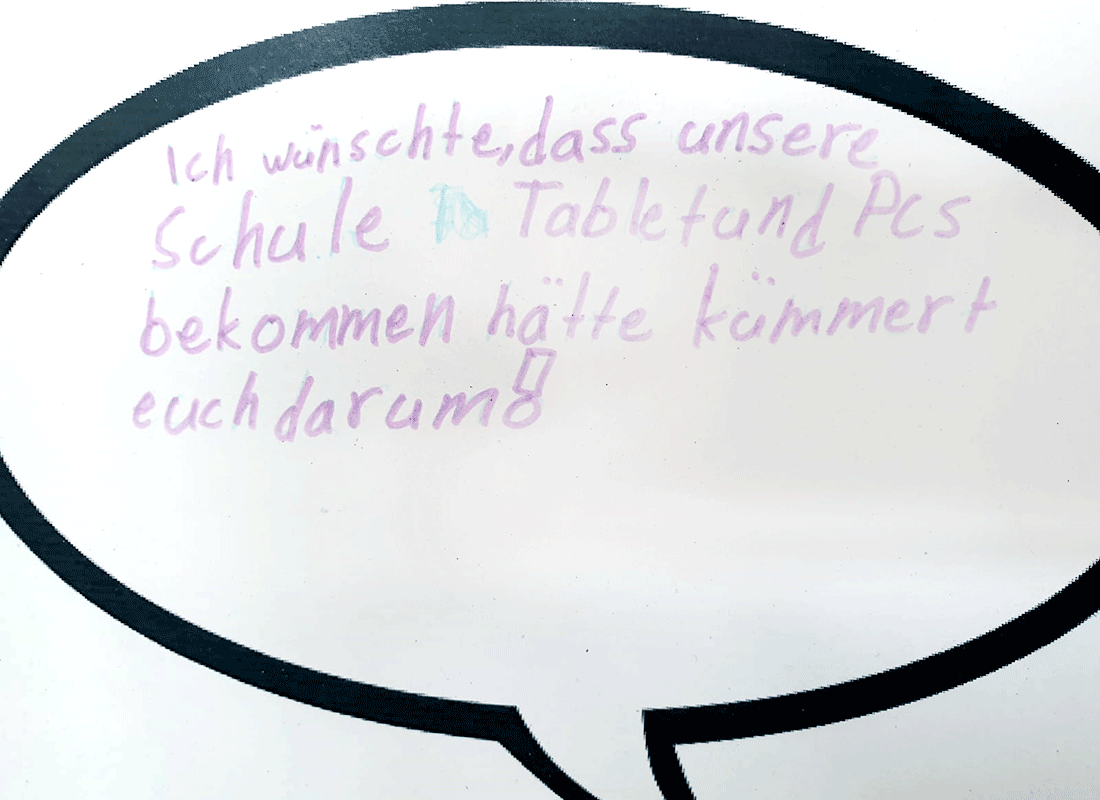 Ich wünschte, dass unsere
Schule Tablet und Pcs
bekommen hätte kümmert
euch darum!